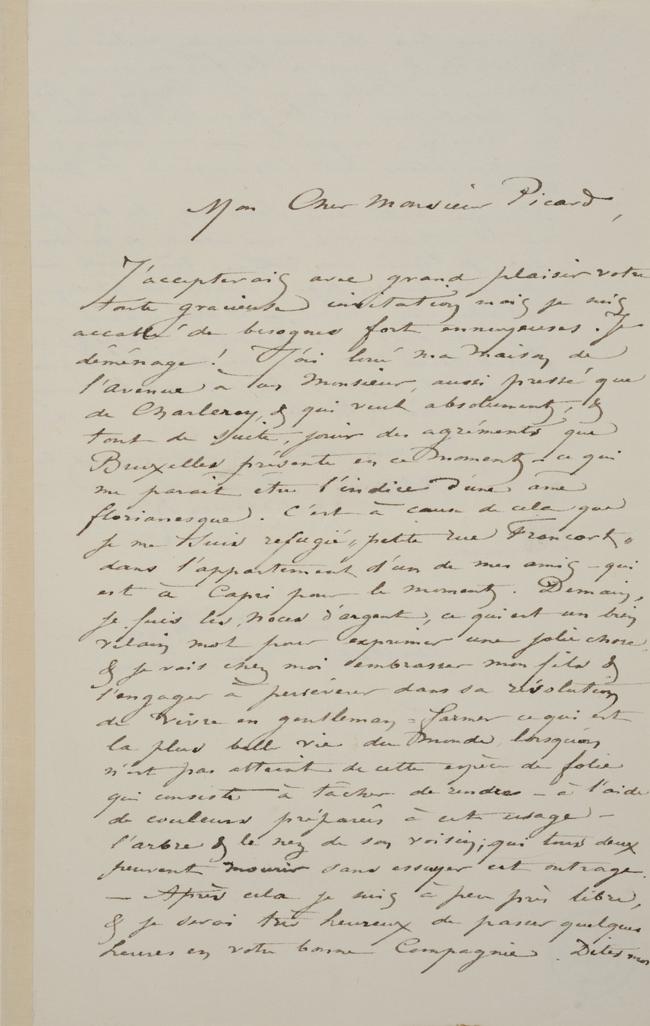 Mon Cher Monsieur Picard,
J'accepterais avec grand plaisir votre
toute gracieuse invitation mais je suis
accablé de besognes fort ennuyeuses. Je
déménage ! J'ai loué ma maison de
l'avenue à un Monsieur, aussi pressé que
de Charleroy, & qui veut absolument, &
tout de suite, jouir des agréments que
Bruxelles présente en ce moment – ce qui
me parait être l'indice d'une âme
florianesque. C'est à cause de cela que
je me suis refugié, "petite rue Francart"
dans l'appartement d'un de mes amis – qui
est à Capri pour le moment. Demain,
je fais les noces d'argent, ce qui est un bien
vilain mot pour exprimer une jolie chose,
& je vais chez moi embrasser mon fils &
l'engager à persévérer dans sa résolution
de vivre en gentleman-farmer ce qui est
la plus belle vie du monde lorsqu'on
n'est pas atteint de cette espèce de folie
qui consiste à tâcher de rendre – à l'aide
de couleurs préparées à cet usage –
l'arbre & le nez de son voisin, qui tous deux
peuvent mourir sans essuyer cet outrage.
— Après cela je suis à peu près libre,
& je serai très heureux de passer quelques
heures en votre bonne Compagnie. Dites moi